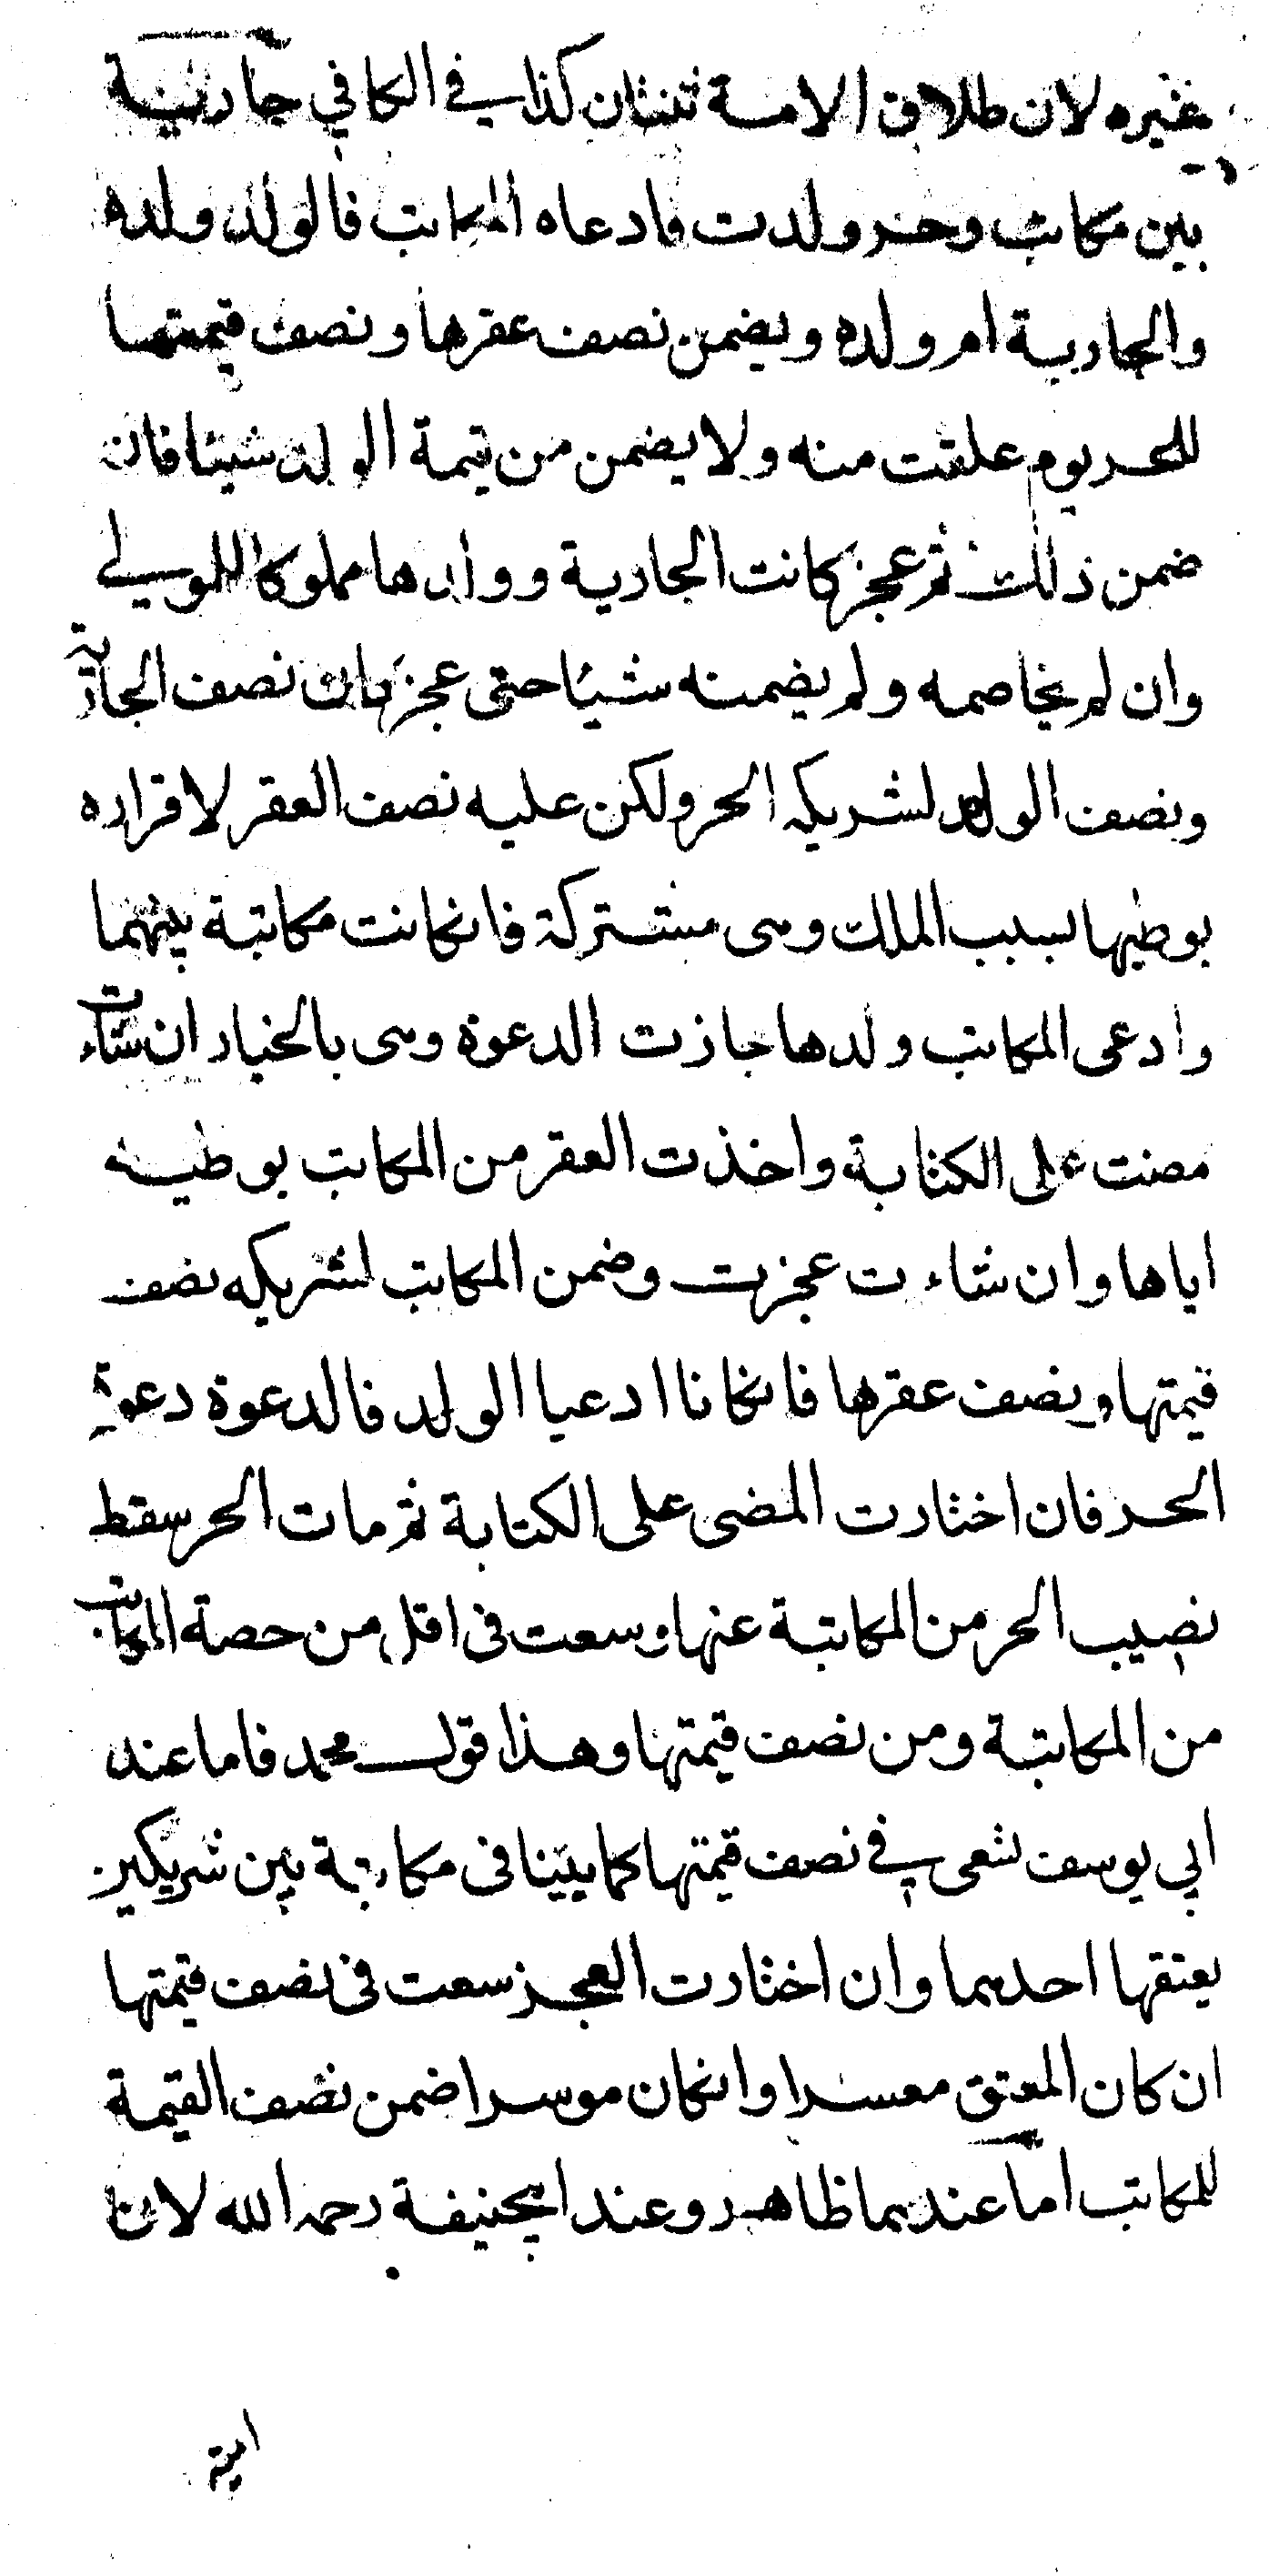 غيره لان طلاق الامة ثنتان كذا في الكافي جارية
بين مكاتب وحر ولدت فادعاه المكاتب فالولد ولده
والجارية ام ولده ويضمن نصف عقرها ونصف قيمتها
للحر يوم علقت منه ولا يضمن من قيمة الولد شيئا فان
ضمن ذلك ثم عجز كانت الجارية وولدها مملوكا للمولي
وان لم يخاصمه ولم يضمنه شيئا حتى عجز كان نصف الجارية
ونصف الولد لشريكه الحر ولكن عليه نصف العقر لاقراره
بوطيها بسبب الملك وهى مشتركة فانكانت مكاتبة بينهما
وادعى المكاتب ولدها جازت الدعوة وهى بالخيار ان شاءت
مضت على الكتابة واخذت العقر من المكاتب بوطيه
اياها وان شاءت عجزت وضمن المكاتب لشريكه نصف
قيمتها ونصف عقرها فانكانا ادعيا الولد فالدعوة دعوة
الحر فان اختارت المضى على الكتابة ثم مات الحر سقط
نصيب الحر من المكاتبة عنها وسعت فى اقل من حصة المكاتب
من المكاتبة ومن نصف قيمتها وهذا قول محمد فاما عند
ابي يوسف تسعى في نصف قيمتها كما بينا فى مكاتبة بين شريكين
يعتقها احدهما وان اختارت العجز سعت فى نصف قيمتها
ان كان المعتق معسرا وانكان موسرا ضمن نصف القيمة
للمكاتب اما عندهما ظاهر وعند ابيحنيفة رحمه الله لان